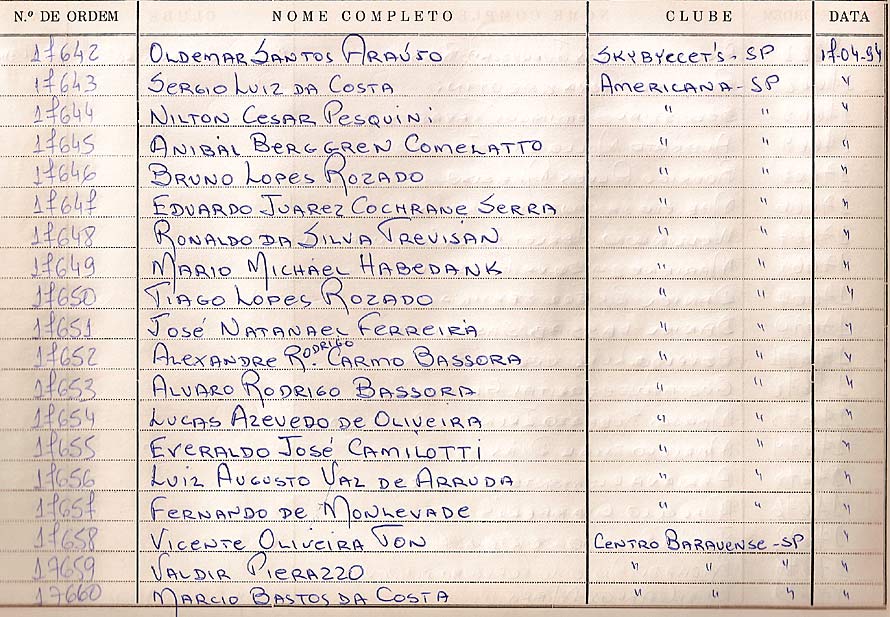 N.º DE ORDEM NOME COMPLETO CLUBE DATA
17642 OLDEMAR SANTOS ARAÚJO SKYBYECET'S - SP 17-04-94
17643 SERGIO LUIZ DA COSTA AMERICANA - SP "
17644 NILTON CESAR PESQUINI " " "
17645 ANIBAL BERGGREN COMELATTO " " "
17646 BRUNO LOPES ROZADO " " "
17647 EDUARDO JUAREZ COCHRANE SERRA " " "
17648 RONALDO DA SILVA TREVISAN " " "
17649 MARIO MICHAEL HABEDANK " " "
17650 TIAGO LOPES ROZADO " " "
17651 JOSÉ NATANAEL FERREIRA " " "
17652 ALEXANDRE RODRIGO CARMO BASSORA " " "
17653 ALVARO RODRIGO BASSORA " " "
17654 LUCAS AZEVEDO DE OLIVEIRA " " "
17655 EVERALDO JOSÉ CAMILOTTI " " "
17656 LUIZ AUGUSTO VAZ DE ARRUDA " " "
17657 FERNANDO DE MONLEVADE " " "
17658 VICENTE OLIVEIRA TON CENTRO BARAUENSE - SP "
17659 VALDIR PIERAZZO " " " "
17660 MARCIO BASTOS DA COSTA " " " "